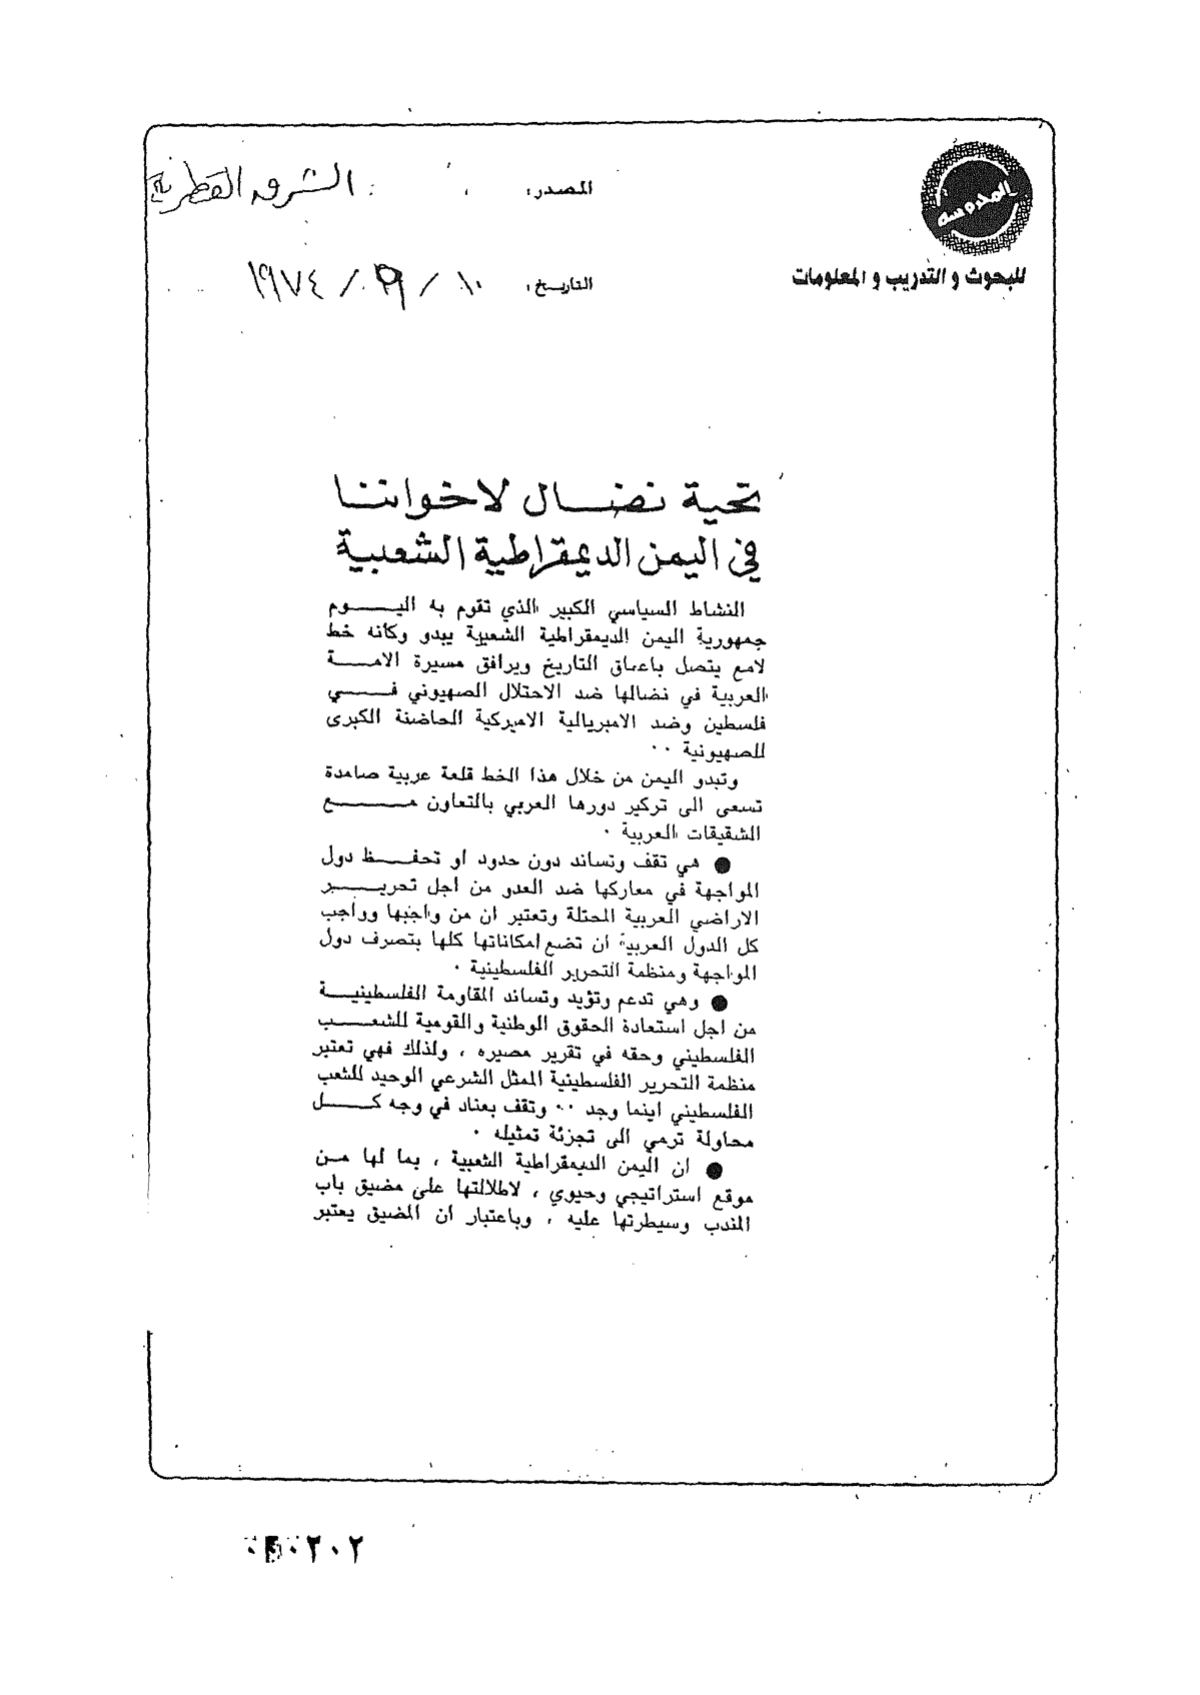 المدوسه
للبحوث و التدريب و المعلومات
المصدر: الشرق القطرية
التاريخ: ١٠ / ٠٩ / ١٩٧٤
تحية نضال لاخواننا
في اليمن الديمقراطية الشعبية
النشاط السياسي الكبير الذي تقوم به اليوم
جمهورية اليمن الديمقراطية الشعبية يبدو وكأنه خط
لامع يتصل باعماق التاريخ ويرافق مسيرة الامة
العربية في نضالها ضد الاحتلال الصهيوني في
فلسطين وضد الامبريالية الاميركية الحاضنة الكبرى
للصهيونية ..
وتبدو اليمن من خلال هذا الخط قلعة عربية صامدة
تسعى الى تركيز دورها العربي بالتعاون مع
الشقيقات العربية .
● هي تقف وتساند دون حدود او تحفظ دول
المواجهة في معاركها ضد العدو من اجل تحرير
الاراضي العربية المحتلة وتعتبر ان من واجبها وواجب
كل الدول العربية ان تضع امكاناتها كلها بتصرف دول
المواجهة ومنظمة التحرير الفلسطينية .
● وهي تدعم وتؤيد وتساند المقاومة الفلسطينية
من اجل استعادة الحقوق الوطنية والقومية للشعب
الفلسطيني وحقه في تقرير مصيره ، ولذلك فهي تعتبر
منظمة التحرير الفلسطينية الممثل الشرعي الوحيد للشعب
الفلسطيني اينما وجد .. وتقف بعناد في وجه كل
محاولة ترمي الى تجزئة تمثيله .
● ان اليمن الديمقراطية الشعبية ، بما لها من
موقع استراتيجي وحيوي ، لاطلالتها على مضيق باب
المندب وسيطرتها عليه ، وباعتبار ان المضيق يعتبر